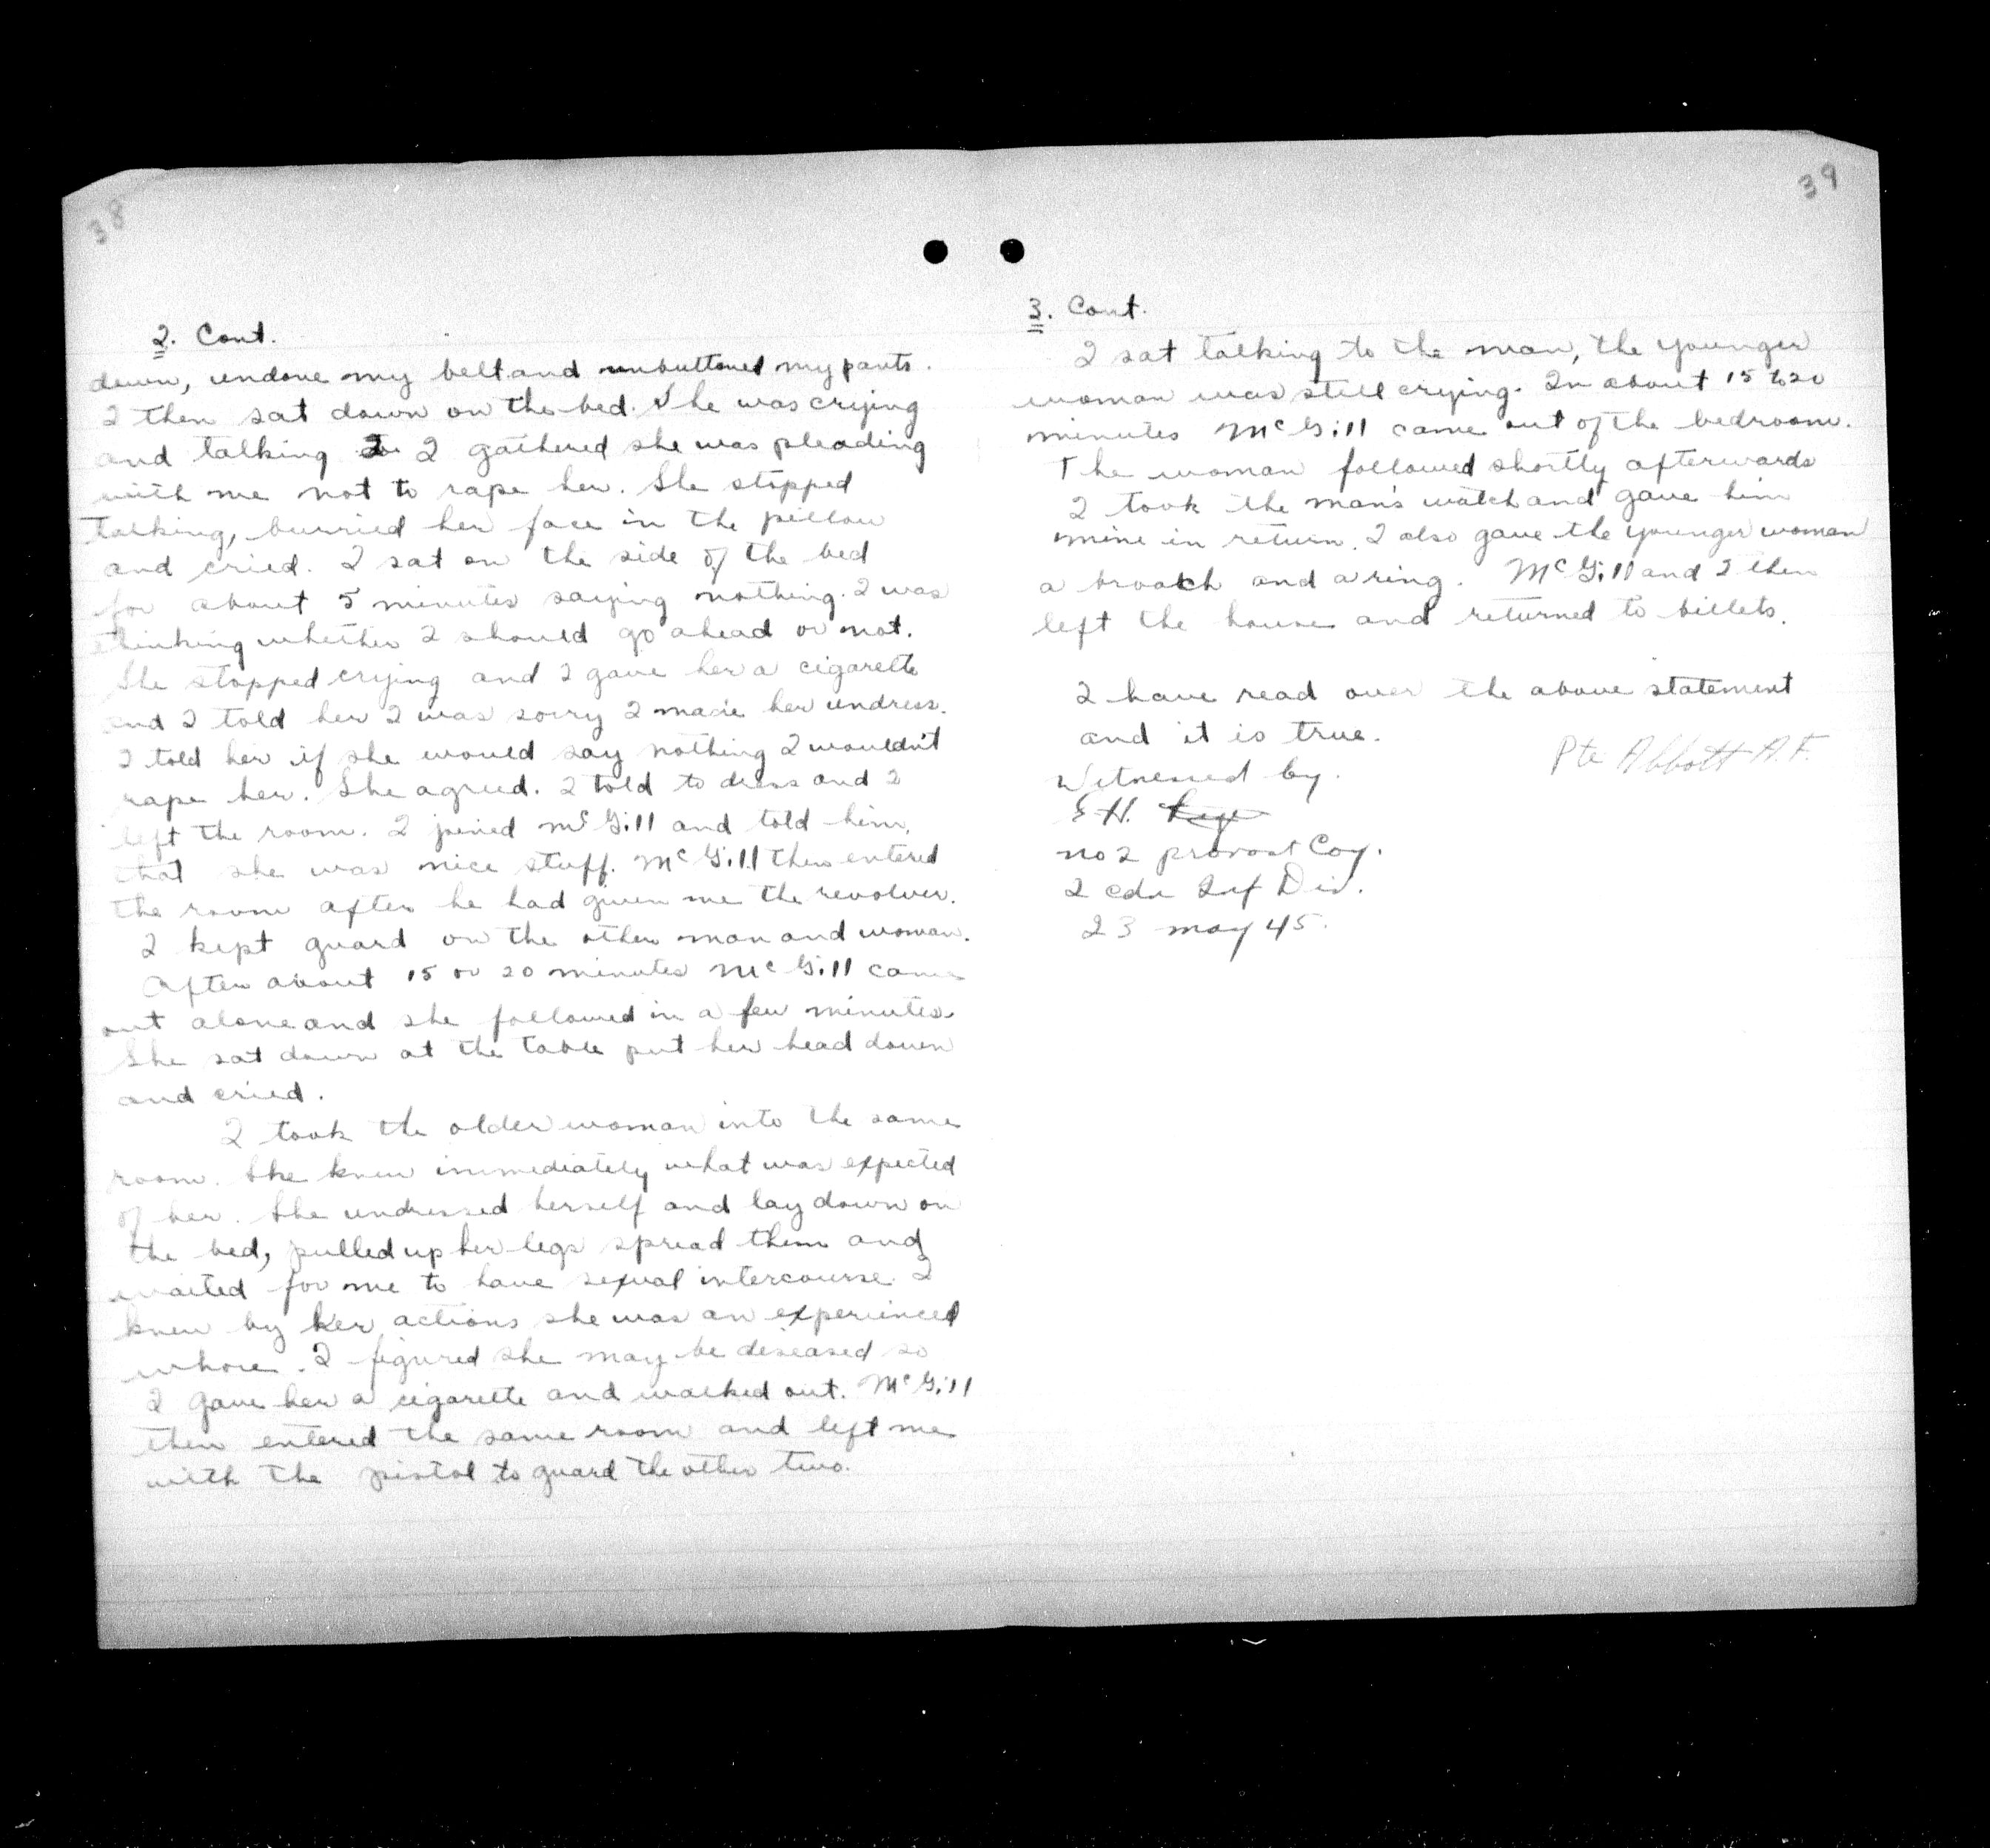 38
2. Cont.
down, undone my belt and unbuttoned my pants.
I then sat down on the bed. She was crying
and talking I gathered she was pleading
with me not to rape her. She stopped
talking, burried her face in the pillow
and cried. I sat on the side of the bed
for about 5 minutes saying nothing. I was
thinking whether I should go ahead or not.
She stopped crying and I gave her a cigarette
and I told her I was sorry I made her undress.
I told her if she would say nothing I wouldn't
rape her. She agreed. I told to dress and I
left the room. I joined McGill and told him,
that she was nice stuff. McGill then entered
the room after he had given me the revolver.
I kept guard on the other man and woman.
After about 15 or 20 minutes McGill came
out alone and she followed in a few minutes.
She sat down at the table put her head down
and cried.
I took the older woman into the same
room. She knew immediately what was expected
of her. She undressed herself and lay down on
the bed, pulled up her legs spread them and
waited for me to have sexual intercourse. I
knew by her actions she was an experienced
whore. I figured she may be diseased so
I gave her a cigarette and walked out. McGill
then entered the same room and left me
with the pistol to guard the other two.
39
3. Cont.
I sat talking to the man, the younger
woman was still crying. In about 15 to 20
minutes McGill came out of the bedroom.
The woman followed shortly afterwards
I took the man's watch and gave him
mine in return. I also gave the younger woman
a broach and a ring. McGill and I then
left the house and returned to billets.
I have read over the above statement
and it is true.
Pte Abbott A.F.
Witnessed by.
E H.
No 2 provost Coy.
2 cdn Inf Div.
23 may 45.